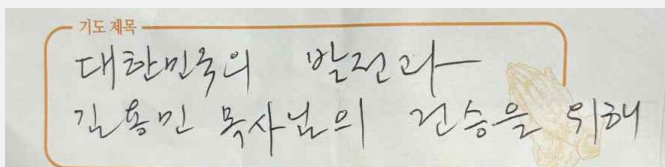 기도 제목
대한민국의 발전과
김용민 목사님의 건승을 위해